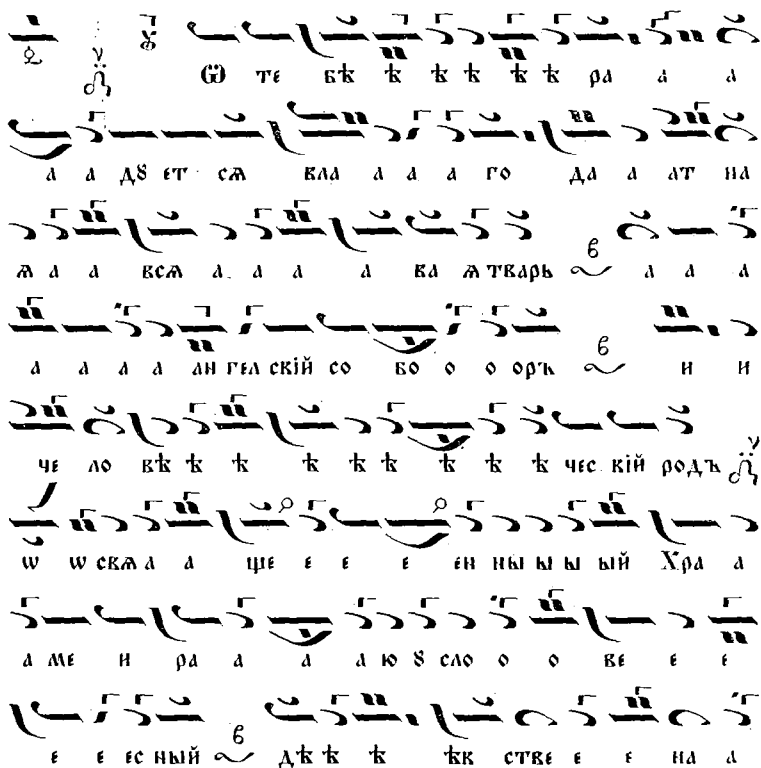 Ѿ те бѣ ѣ ѣ ѣ ѣ ѣ ра а а
а а дꙋ ет сѧ вла а а а го да а ат на
ѧ а а всѧ а а а а ва ѧ тварь в а а а
а а а а ан гел скїй со бо о о оръ в и и
че ло вѣ ѣ ѣ ѣ ѣ ѣ ѣ ѣ ѣ чес кїй родъ
ѡ ѡ свѧ а а ще е е е ен ны ы ы ый Хра а
а ме и ра а а а ю ꙋ сло о о ве е е
е е ес ный в дѣ ѣ ѣ ѣв стве е е на а